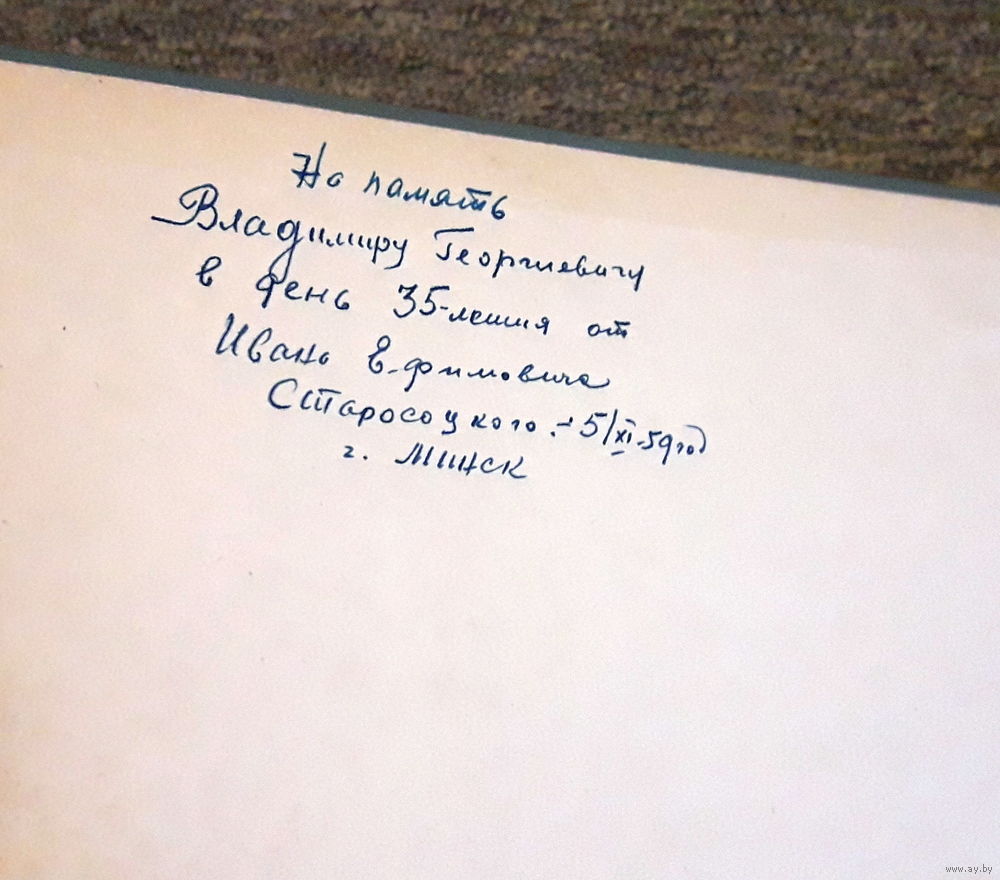 На память
Владимиру Георгиевичу
в день 35-летия от
Ивана Ефимовича
Старосоцкого. 5/XI-59 год
г. Минск
www.ay.by